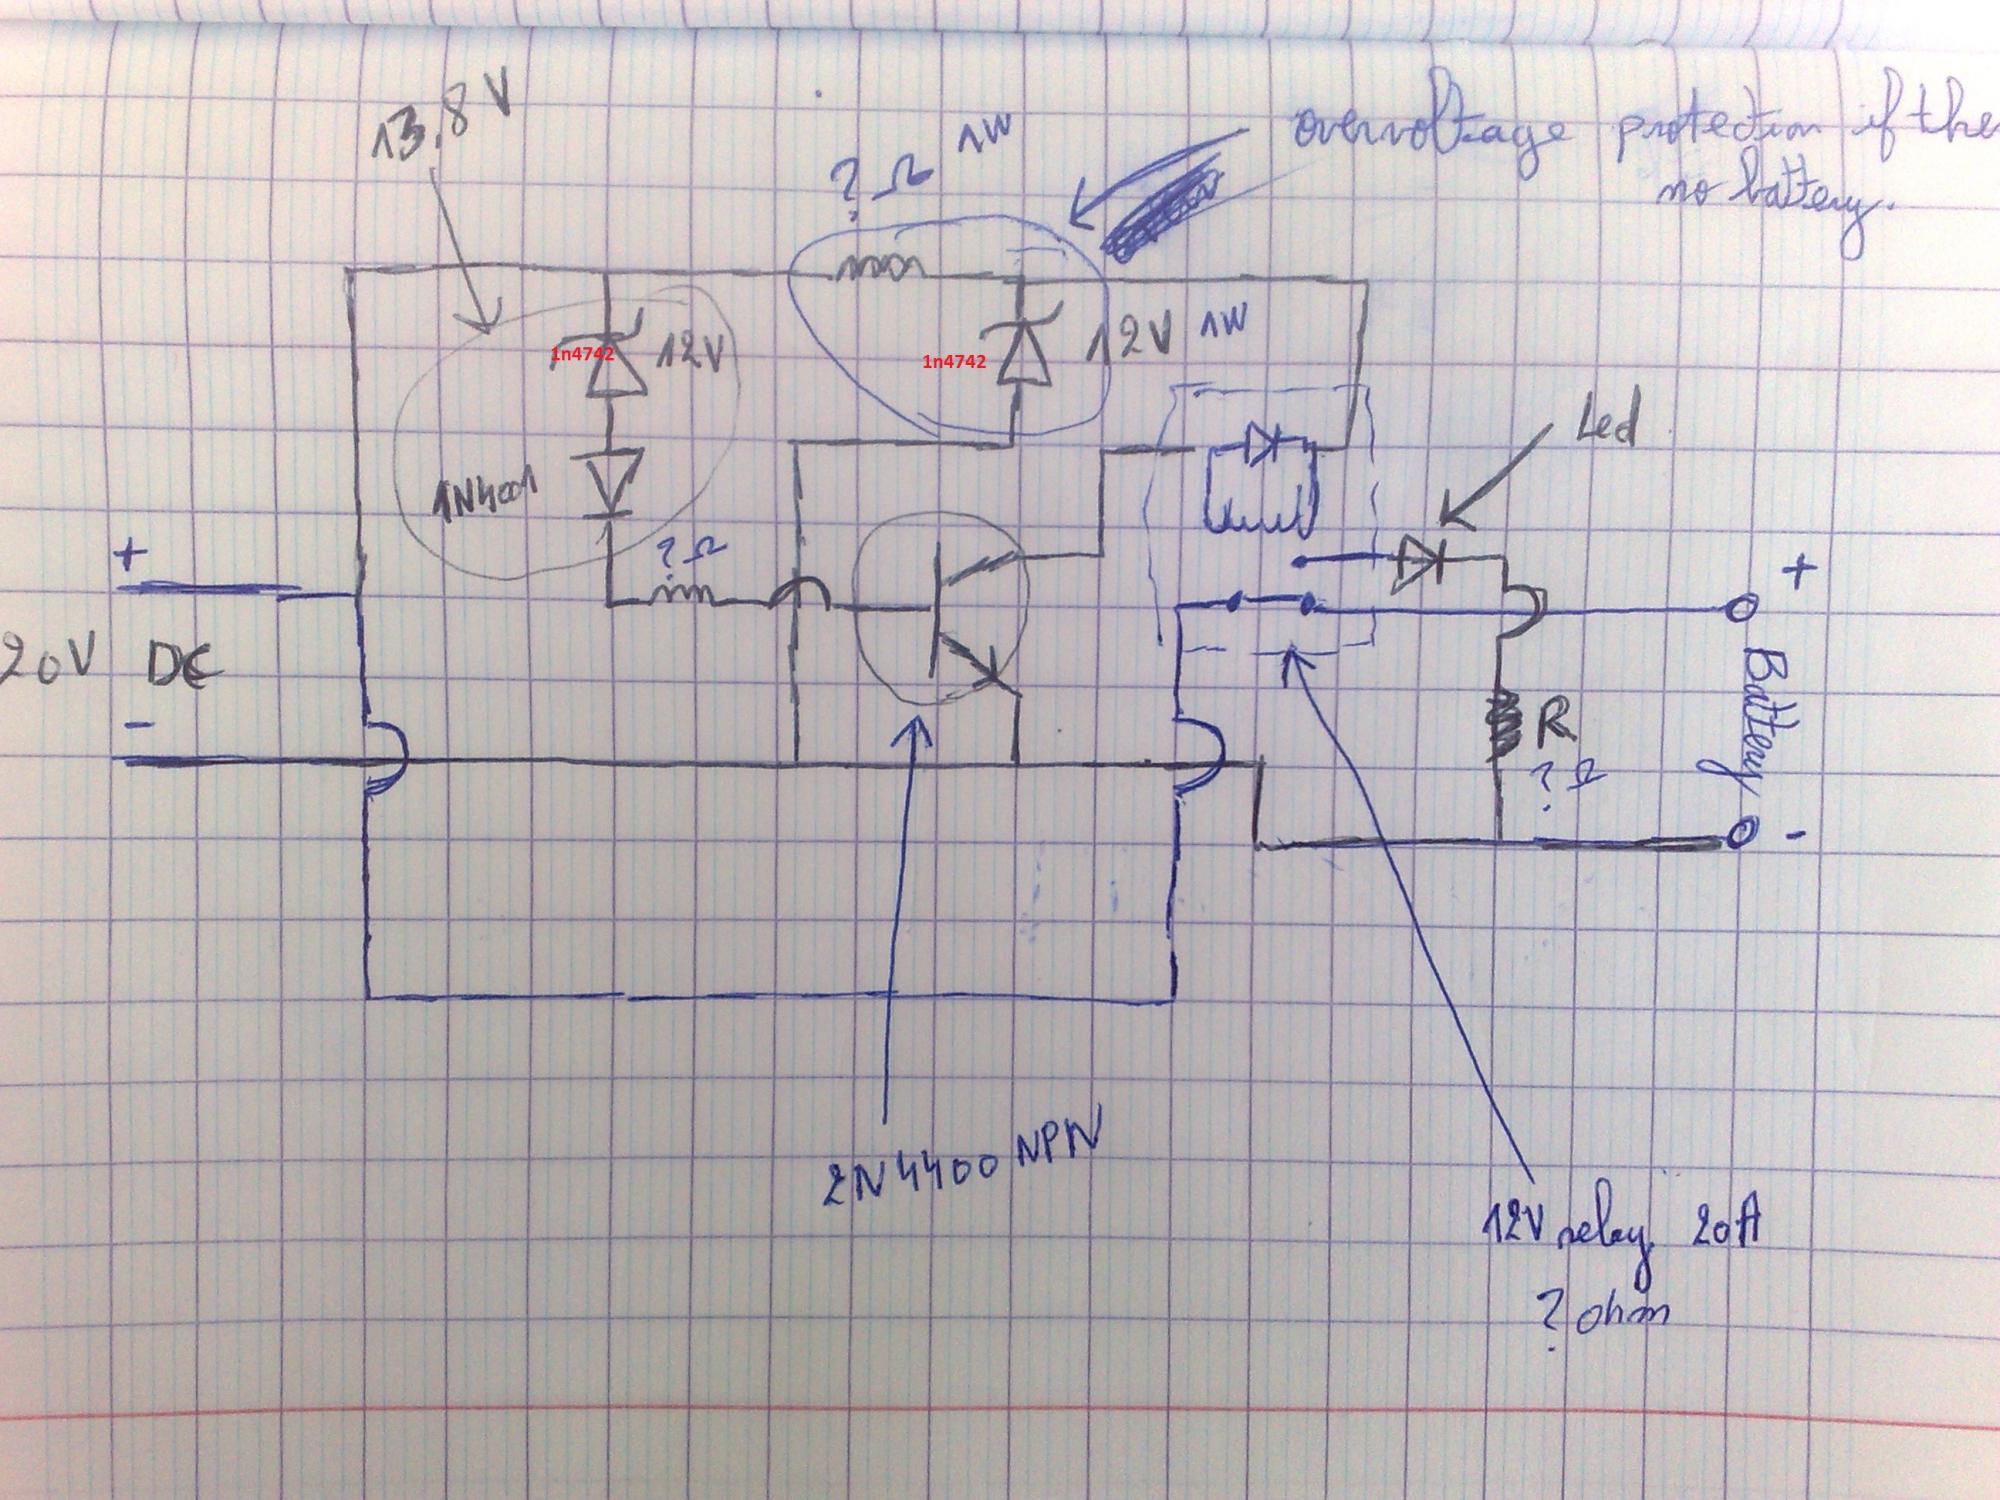 13.8V
? Ω 1W
overvoltage protection if the
no battery.
1n4742
12V
1n4742
12V 1W
Led
1N4001
? Ω
+
20V DC
-
+
Battery
-
R
? Ω
2N4400 NPN
12V relay 20A
? ohm